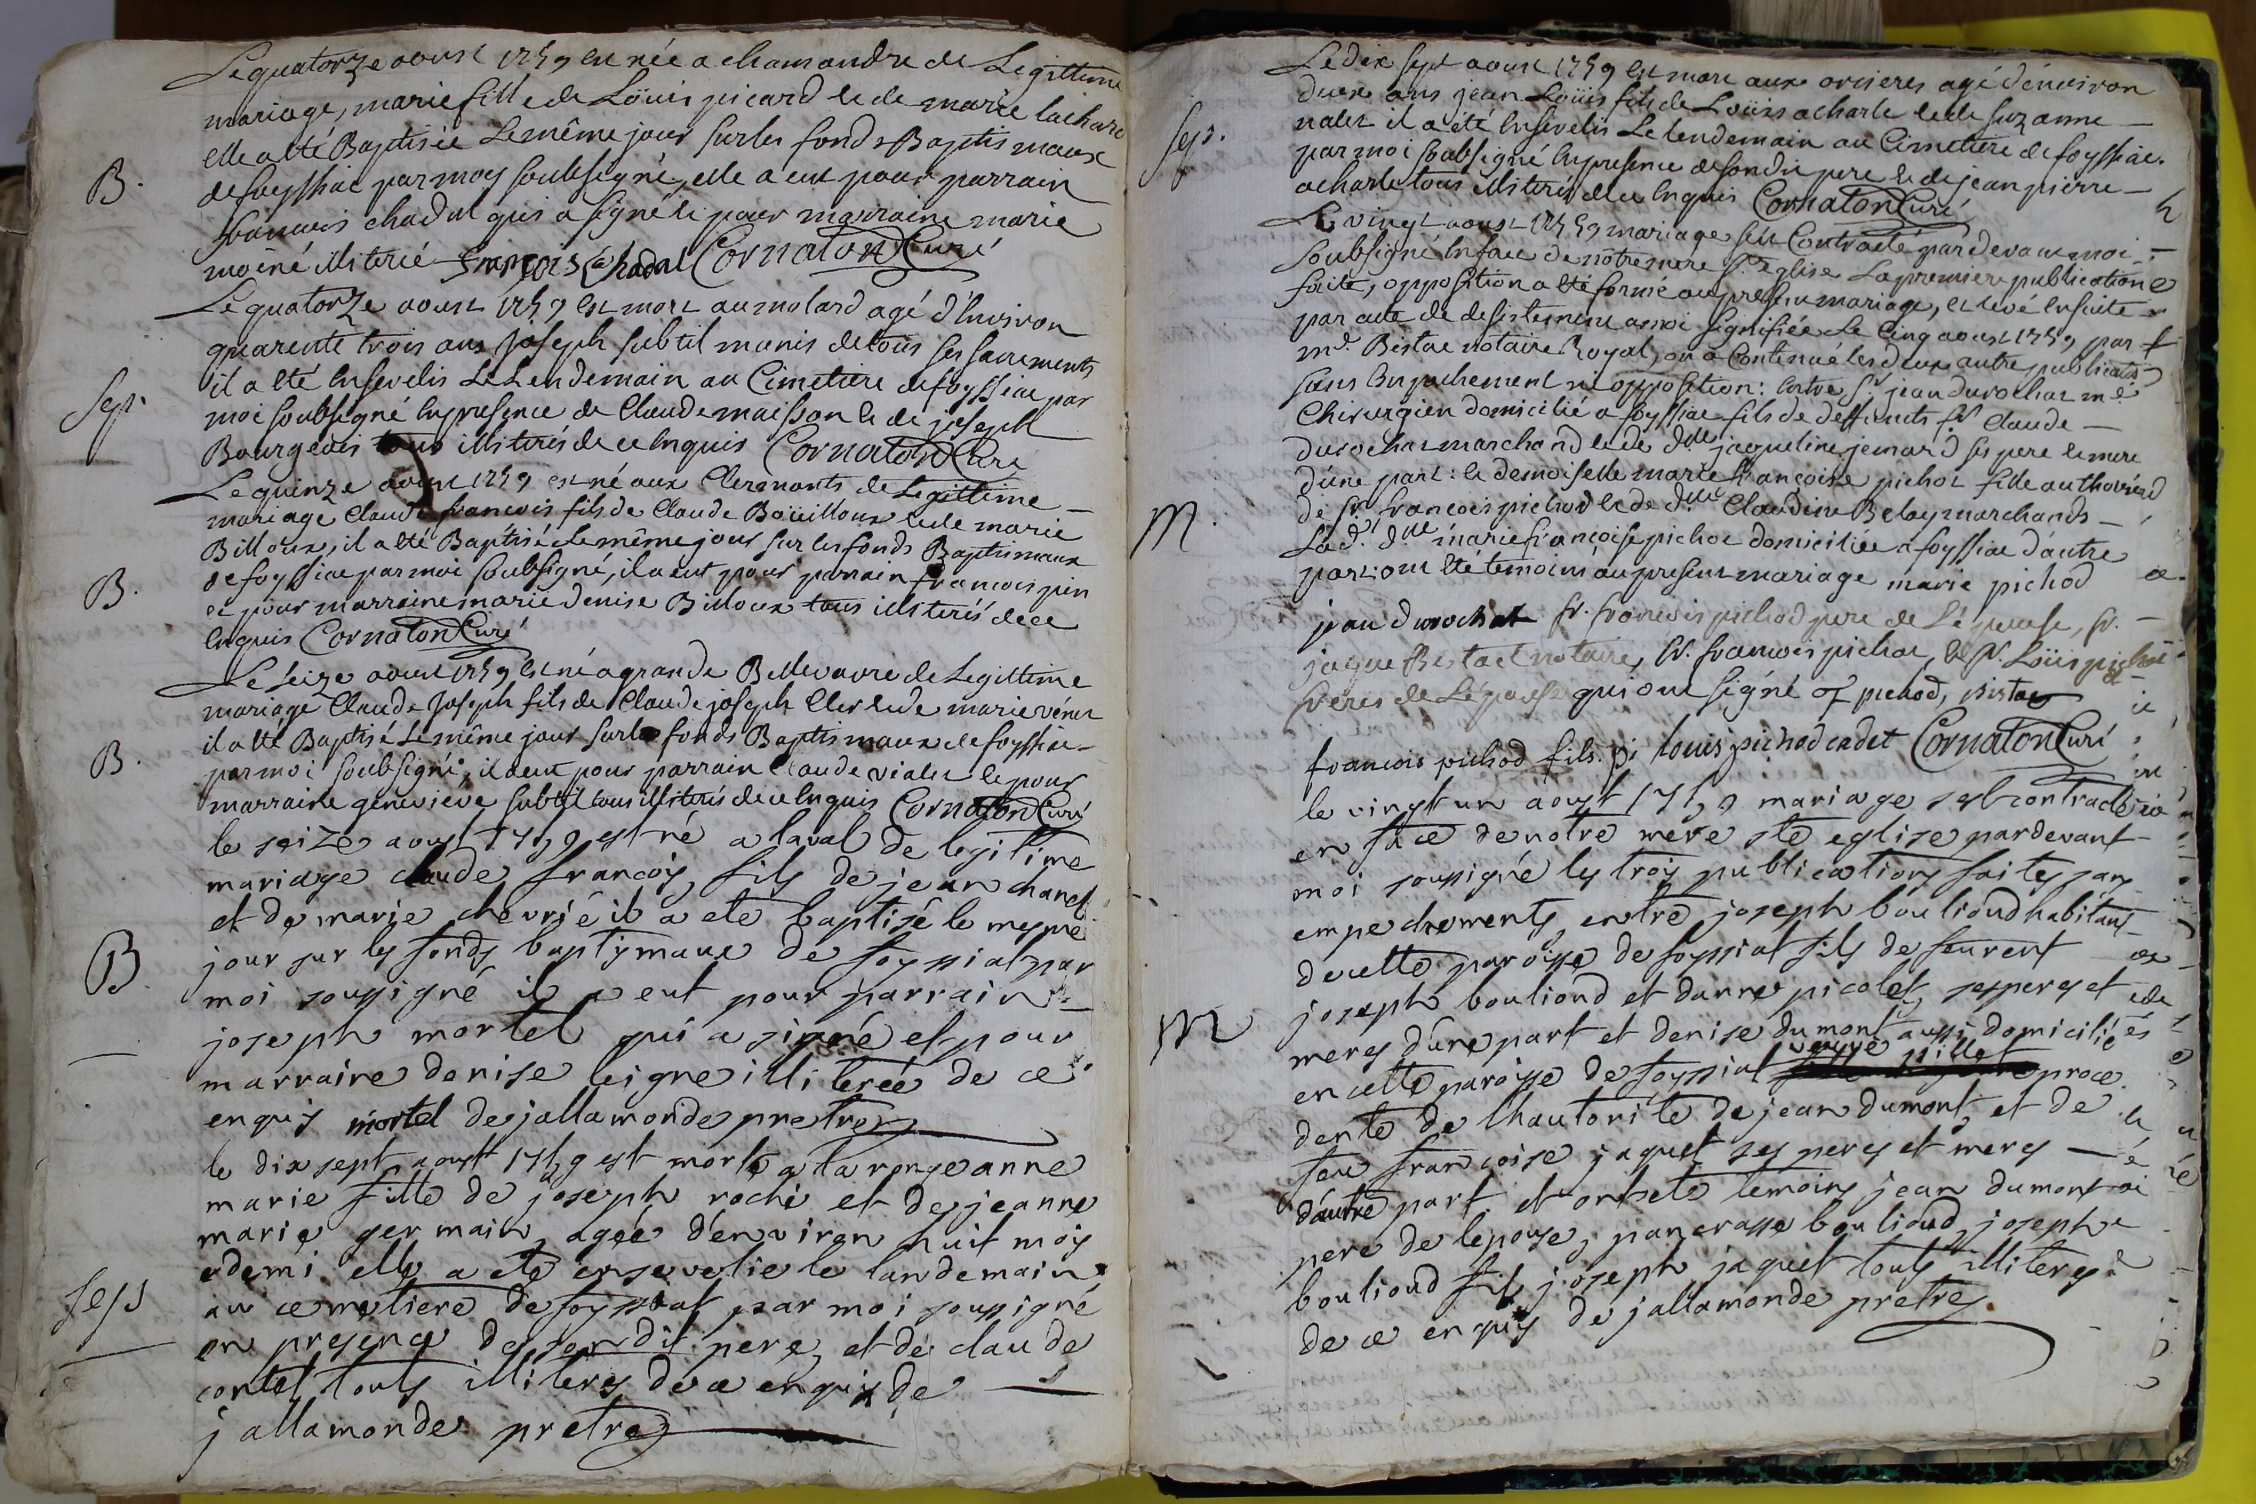 Le quatorze aoust 1759 est née a chamandre de Legittime
mariage, marie fille de Loüis picard et de marie lachard
elle a été Baptisée Le même jour sur les fonds Baptismaux
B.
de foyssiac par moy soubsigné, elle a eut pour parrain
francois chadal qui a signé et pour marraine marie
moéné illiterié françois Chadal Cornaton Curé
Le quatorze aoust 1759 est mort au molard agé d'Environ
quarente trois ans Joseph subtil munis de tous ses sacrements
il a été Ensevelis Le Lendemain au Cimetiere de foyssiac par
Sep.
moi soubsigné En presence de Claude maisson et de joseph
Bourgeois tous illiterés de ce Enquis Cornaton Curé
Le quinze aoust 1759 est né aux Clermonts de Legittime
mariage Claude francois fils de Claude Boüilloux et de marie
Billoux, il a été Baptisé Le même jour sur les fonds Baptismaux
B.
de foyssiac par moi soubsigné, il a eut pour parrain francois pin
et pour marraine marie denise Billoux tous illiterés de ce
Enquis Cornaton Curé
Le seize aoust 1759 est né a grande Bellevavre de Legittime
mariage Claude Joseph fils de Claude joseph Clerc et de marie vénet
il a été Baptisé Le même jour sur les fonds Baptismaux de foyssiac
B.
par moi soubsigné, il a eut pour parrain Claude vialet et pour
marraine geneviéve subtil tous illiterés de ce Enquis Cornaton Curé
le seize aoust 1759 est né a laval de legitime
mariage claude françois fils de jean chanel
et de marie chevrié il a eté baptisé le mesme
B.
jour sur les fonds baptismaux de foyssiat par
moi soussigné il a eut pour parrain
joseph mortel qui a signé et pour
marraine denise leigne illiterée de ce
enquis mortel de jallamonde pretre
le dix sept aoust 1759 est morte a la ronge anne
marie fille de joseph roche et de jeanne
marie germain agée d'environ huit mois
edemi elle a eté ensevelie le landemain
Seps
au cemetiere de foyssiat par moi soussigné
en presence de son dit pere, et de claude
contet touts illiteres de ce enquis de
jallamonde pretre
Le dix sept aoust 1759 est mort aux orcieres agé d'énviron
deux ans jean Loüis fils de Loüis acharle et de suzanne
Sep.
nalet il a été Ensevelis Le Lendemain au Cimetiere de foyssiac
par moi soubsigné En presence de son dit pere et de jean pierre
acharle tous illiterés de ce Enquis Cornaton Curé
Le vingt aoust 1759 mariage s'est Contracté par devant moi
soubsigné En face de nôtre mere Ste. église La premiere publication
faite, opposition a été formé au present mariage, et levé Ensuite
par acte de desistement a moi signifiée Le Cinq aoust 1759 par
md. Bistac notaire Royal, on a Continué Les deux autre publications
sans Empechement ni opposition: Entre Sr. jean durochat md.
Chirurgien domicilié a foyssiac fils de deffunts Sr. Claude
durochat marchand et de dlle jaqueline jemard ses pere et mere
d'úne part: et demoiselle marie françoise pichot fille authorisée
M.
de Sr. francois pichod et de dlle Claudine Belay marchands
La d. dlle marie françoise pichot domiciliée a foyssiac d'áutre
part: ont été temoins au present mariage marie pichod
jean durochat Sr. francois pichod pere de L'épouse, Sr.
jaque Bistac notaire, Sr. francois pichot, et Sr. Loüis pichot
freres de L'épouse qui ont signé f pichod, Bistac
francois pichod fils. pi louis pichod cadet Cornaton Curé
le vingt un aoust 1759 mariage sest contracté
en face de notre mere ste eglise pardevant
moi soussigné les trois publications faites sans
empechements, entre joseph boulioud habitant
de cette paroisse de foyssiat fils de feu
joseph boulioud et danne picolet, ses peres et
M
meres dúne part et denise dumont aussi domiciliée
en cette paroisse de foyssiat veuve pillet proce
dente de lhautorité de jean dumont, et de
feue françoise jaquet ses peres et meres
dáutre part. et ont eté temoins jean dumont
pere de lepouse, pancrasse boulioud, joseph
boulioud fils, joseph jaquet touts illiteres
de ce enquis de jallamonde pretre.